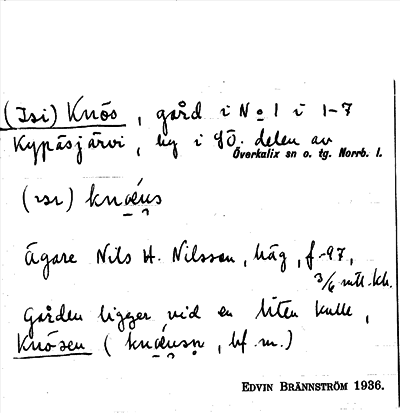 (Isi) Knös, gård i No 1 i 1-7
Kypäsjärvi, by i sö. delen av
Överkalix sn o. tg. Norrb. l.
(ɪsɪ) knœ́us
Ägare Nils H. Nilsson, häg, f. 97,
3/6 mtl. kh.
Gården ligger vid en liten kulle,
Knösen (knœ́usn̥, bf. m.)
EDVIN BRÄNNSTRÖM 1936.